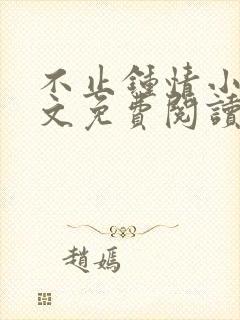 不止鍾情小
文免費閱讀
趙嫣